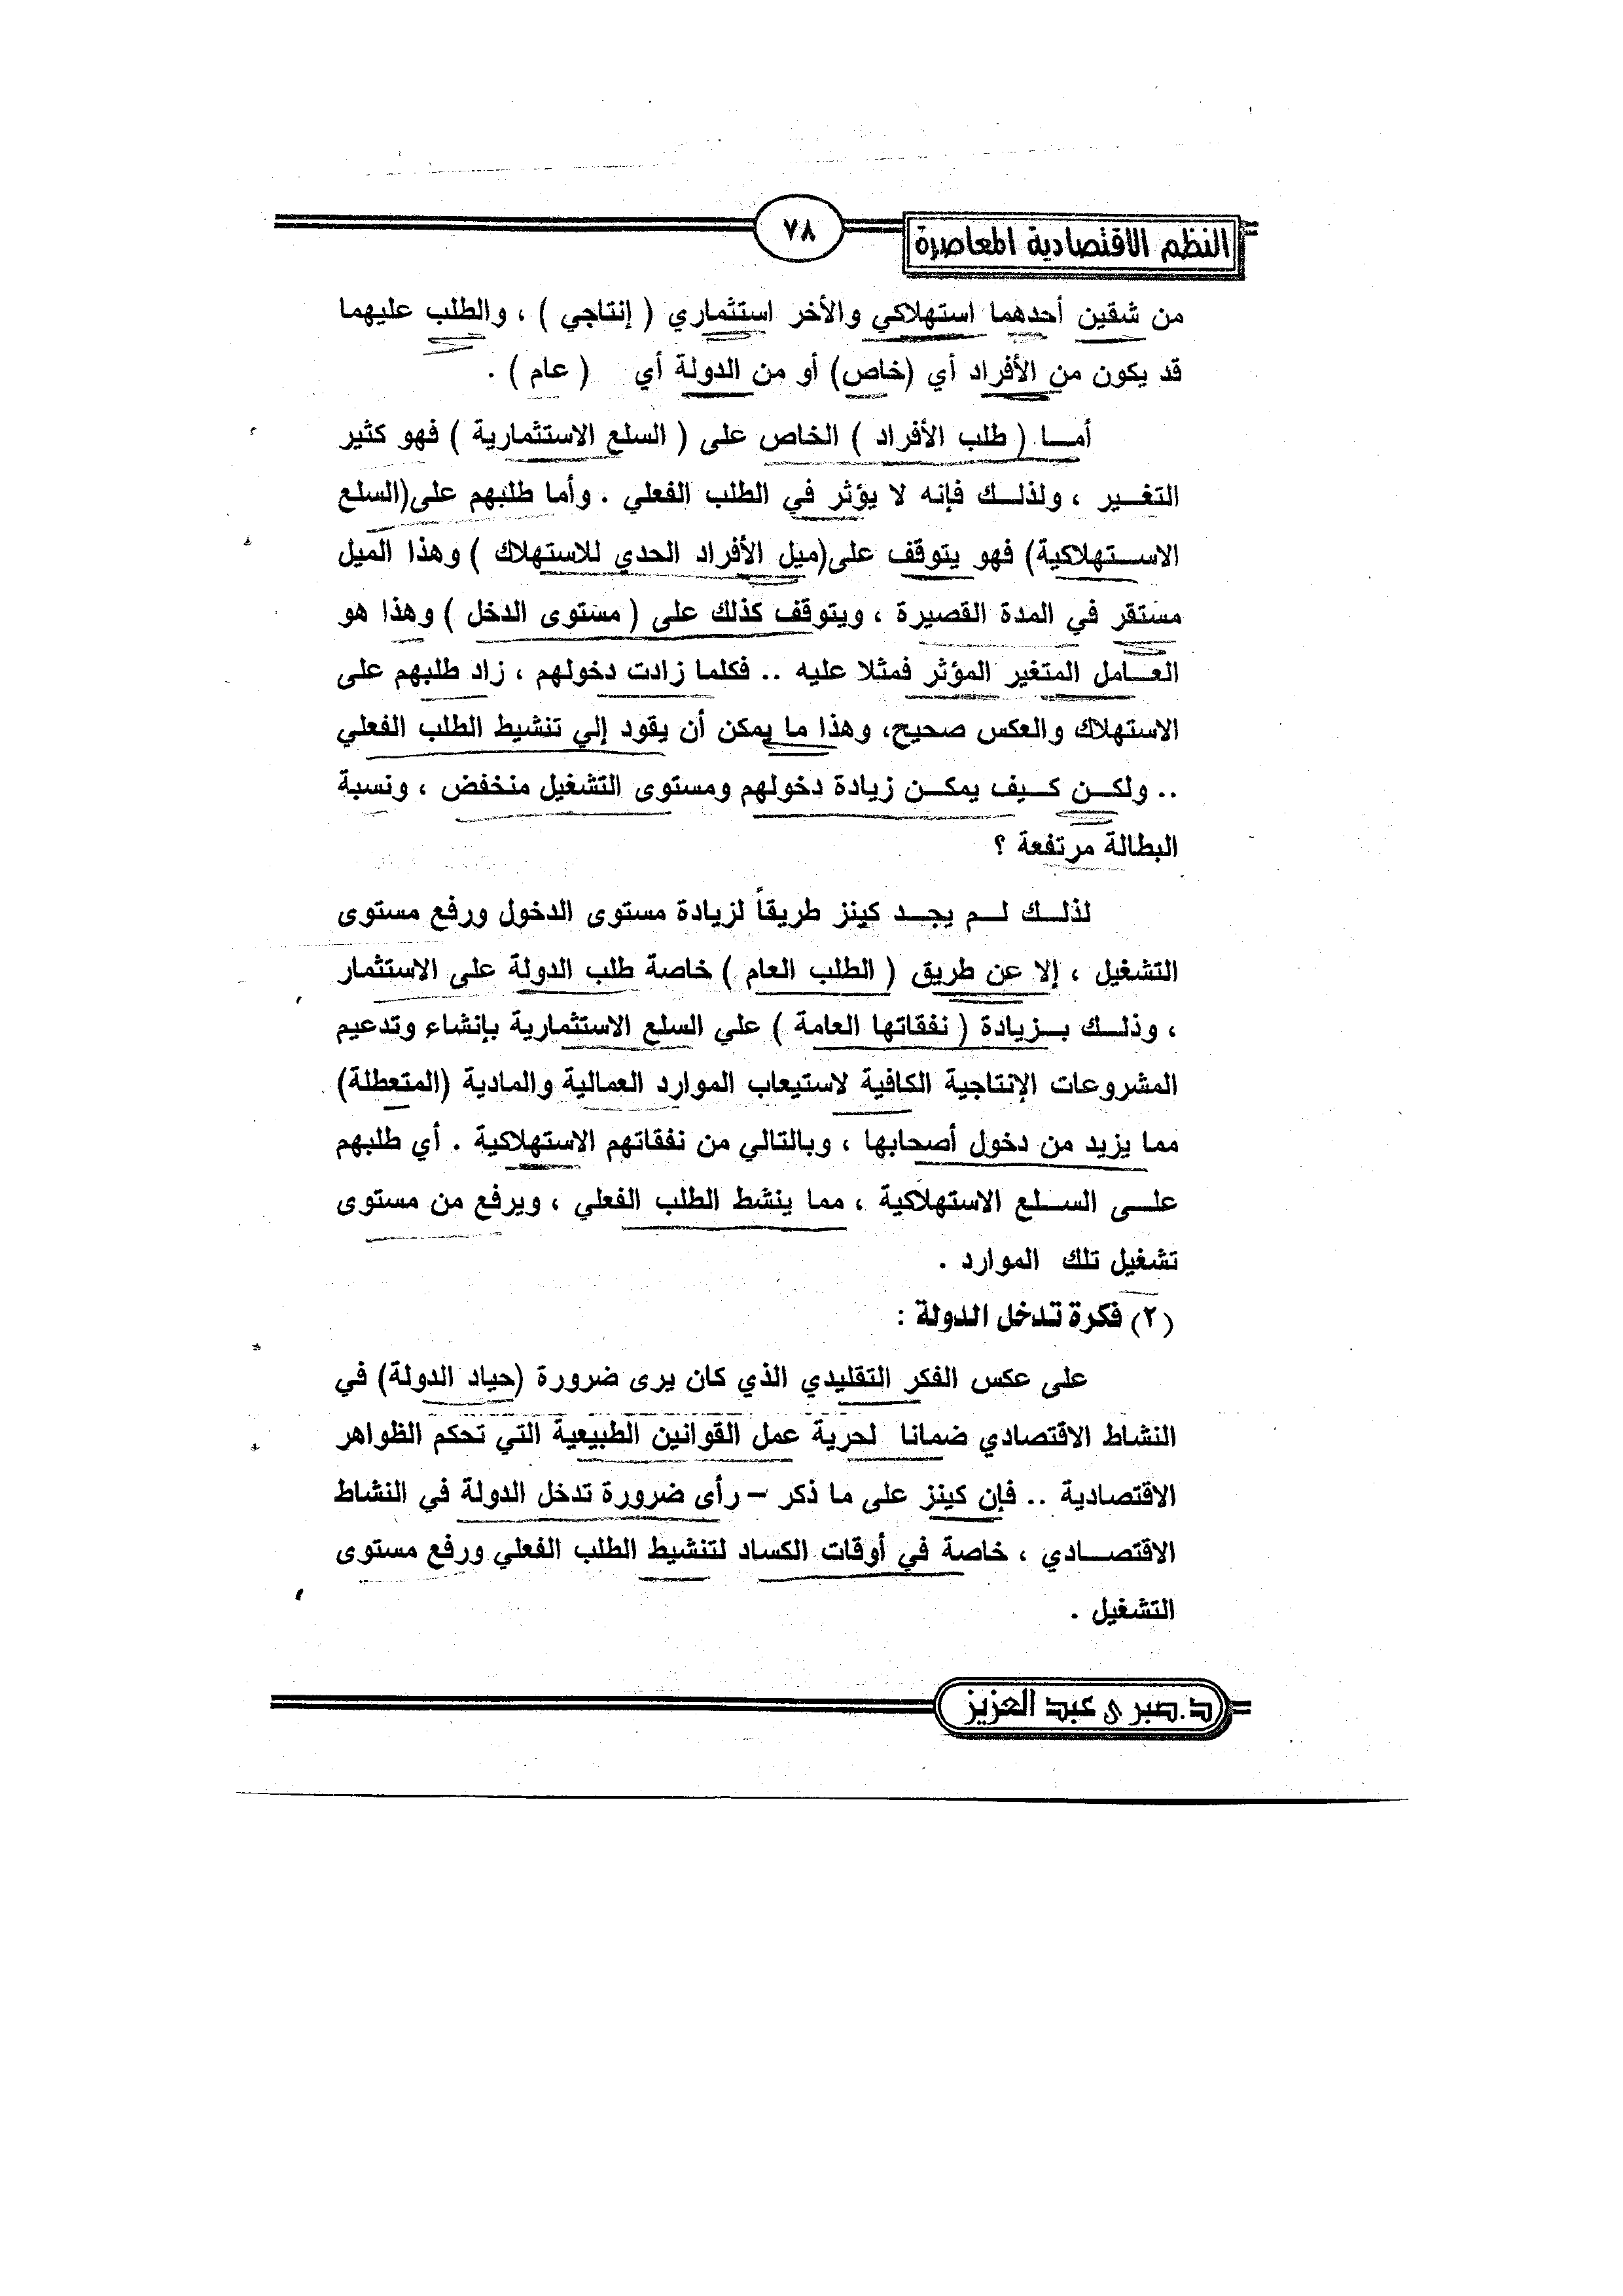 النظم الاقتصادية المعاصرة
٧٨
من شقين أحدهما استهلاكي والأخر استثماري ( إنتاجي ) ، والطلب عليهما
قد يكون من الأفراد أي (خاص) أو من الدولة أي ( عام ) .
أمـا ( طلب الأفراد ) الخاص على ( السلع الاستثمارية ) فهو كثير
التغـير ، ولذلـك فإنه لا يؤثر في الطلب الفعلي . وأما طلبهم على(السلع
الاسـتهلاكية) فهو يتوقف على(ميل الأفراد الحدي للاستهلاك ) وهذا الميل
مستقر في المدة القصيرة ، ويتوقف كذلك على ( مستوى الدخل ) وهذا هو
العـامل المتغير المؤثر فمثلا عليه .. فكلما زادت دخولهم ، زاد طلبهم على
الاستهلاك والعكس صحيح، وهذا ما يمكن أن يقود إلي تنشيط الطلب الفعلي
.. ولكـن كـيف يمكـن زيادة دخولهم ومستوى التشغيل منخفض ، ونسبة
البطالة مرتفعة ؟
لذلـك لـم يجـد كينز طريقاً لزيادة مستوى الدخول ورفع مستوى
التشغيل ، إلا عن طريق ( الطلب العام ) خاصة طلب الدولة على الاستثمار
، وذلـك بـزيادة ( نفقاتها العامة ) علي السلع الاستثمارية بإنشاء وتدعيم
المشروعات الإنتاجية الكافية لاستيعاب الموارد العمالية والمادية (المتعطلة)
مما يزيد من دخول أصحابها ، وبالتالي من نفقاتهم الاستهلاكية . أي طلبهم
علـى السـلع الاستهلاكية ، مما ينشط الطلب الفعلي ، ويرفع من مستوى
تشغيل تلك الموارد .
(٢) فكرة تدخل الدولة :
على عكس الفكر التقليدي الذي كان يرى ضرورة (حياد الدولة) في
النشاط الاقتصادي ضمانا لحرية عمل القوانين الطبيعية التي تحكم الظواهر
الاقتصادية .. فإن كينز على ما ذكر – رأى ضرورة تدخل الدولة في النشاط
الاقتصـادي ، خاصة في أوقات الكساد لتنشيط الطلب الفعلي ورفع مستوى
التشغيل .
د.صبرى عبد العزيز